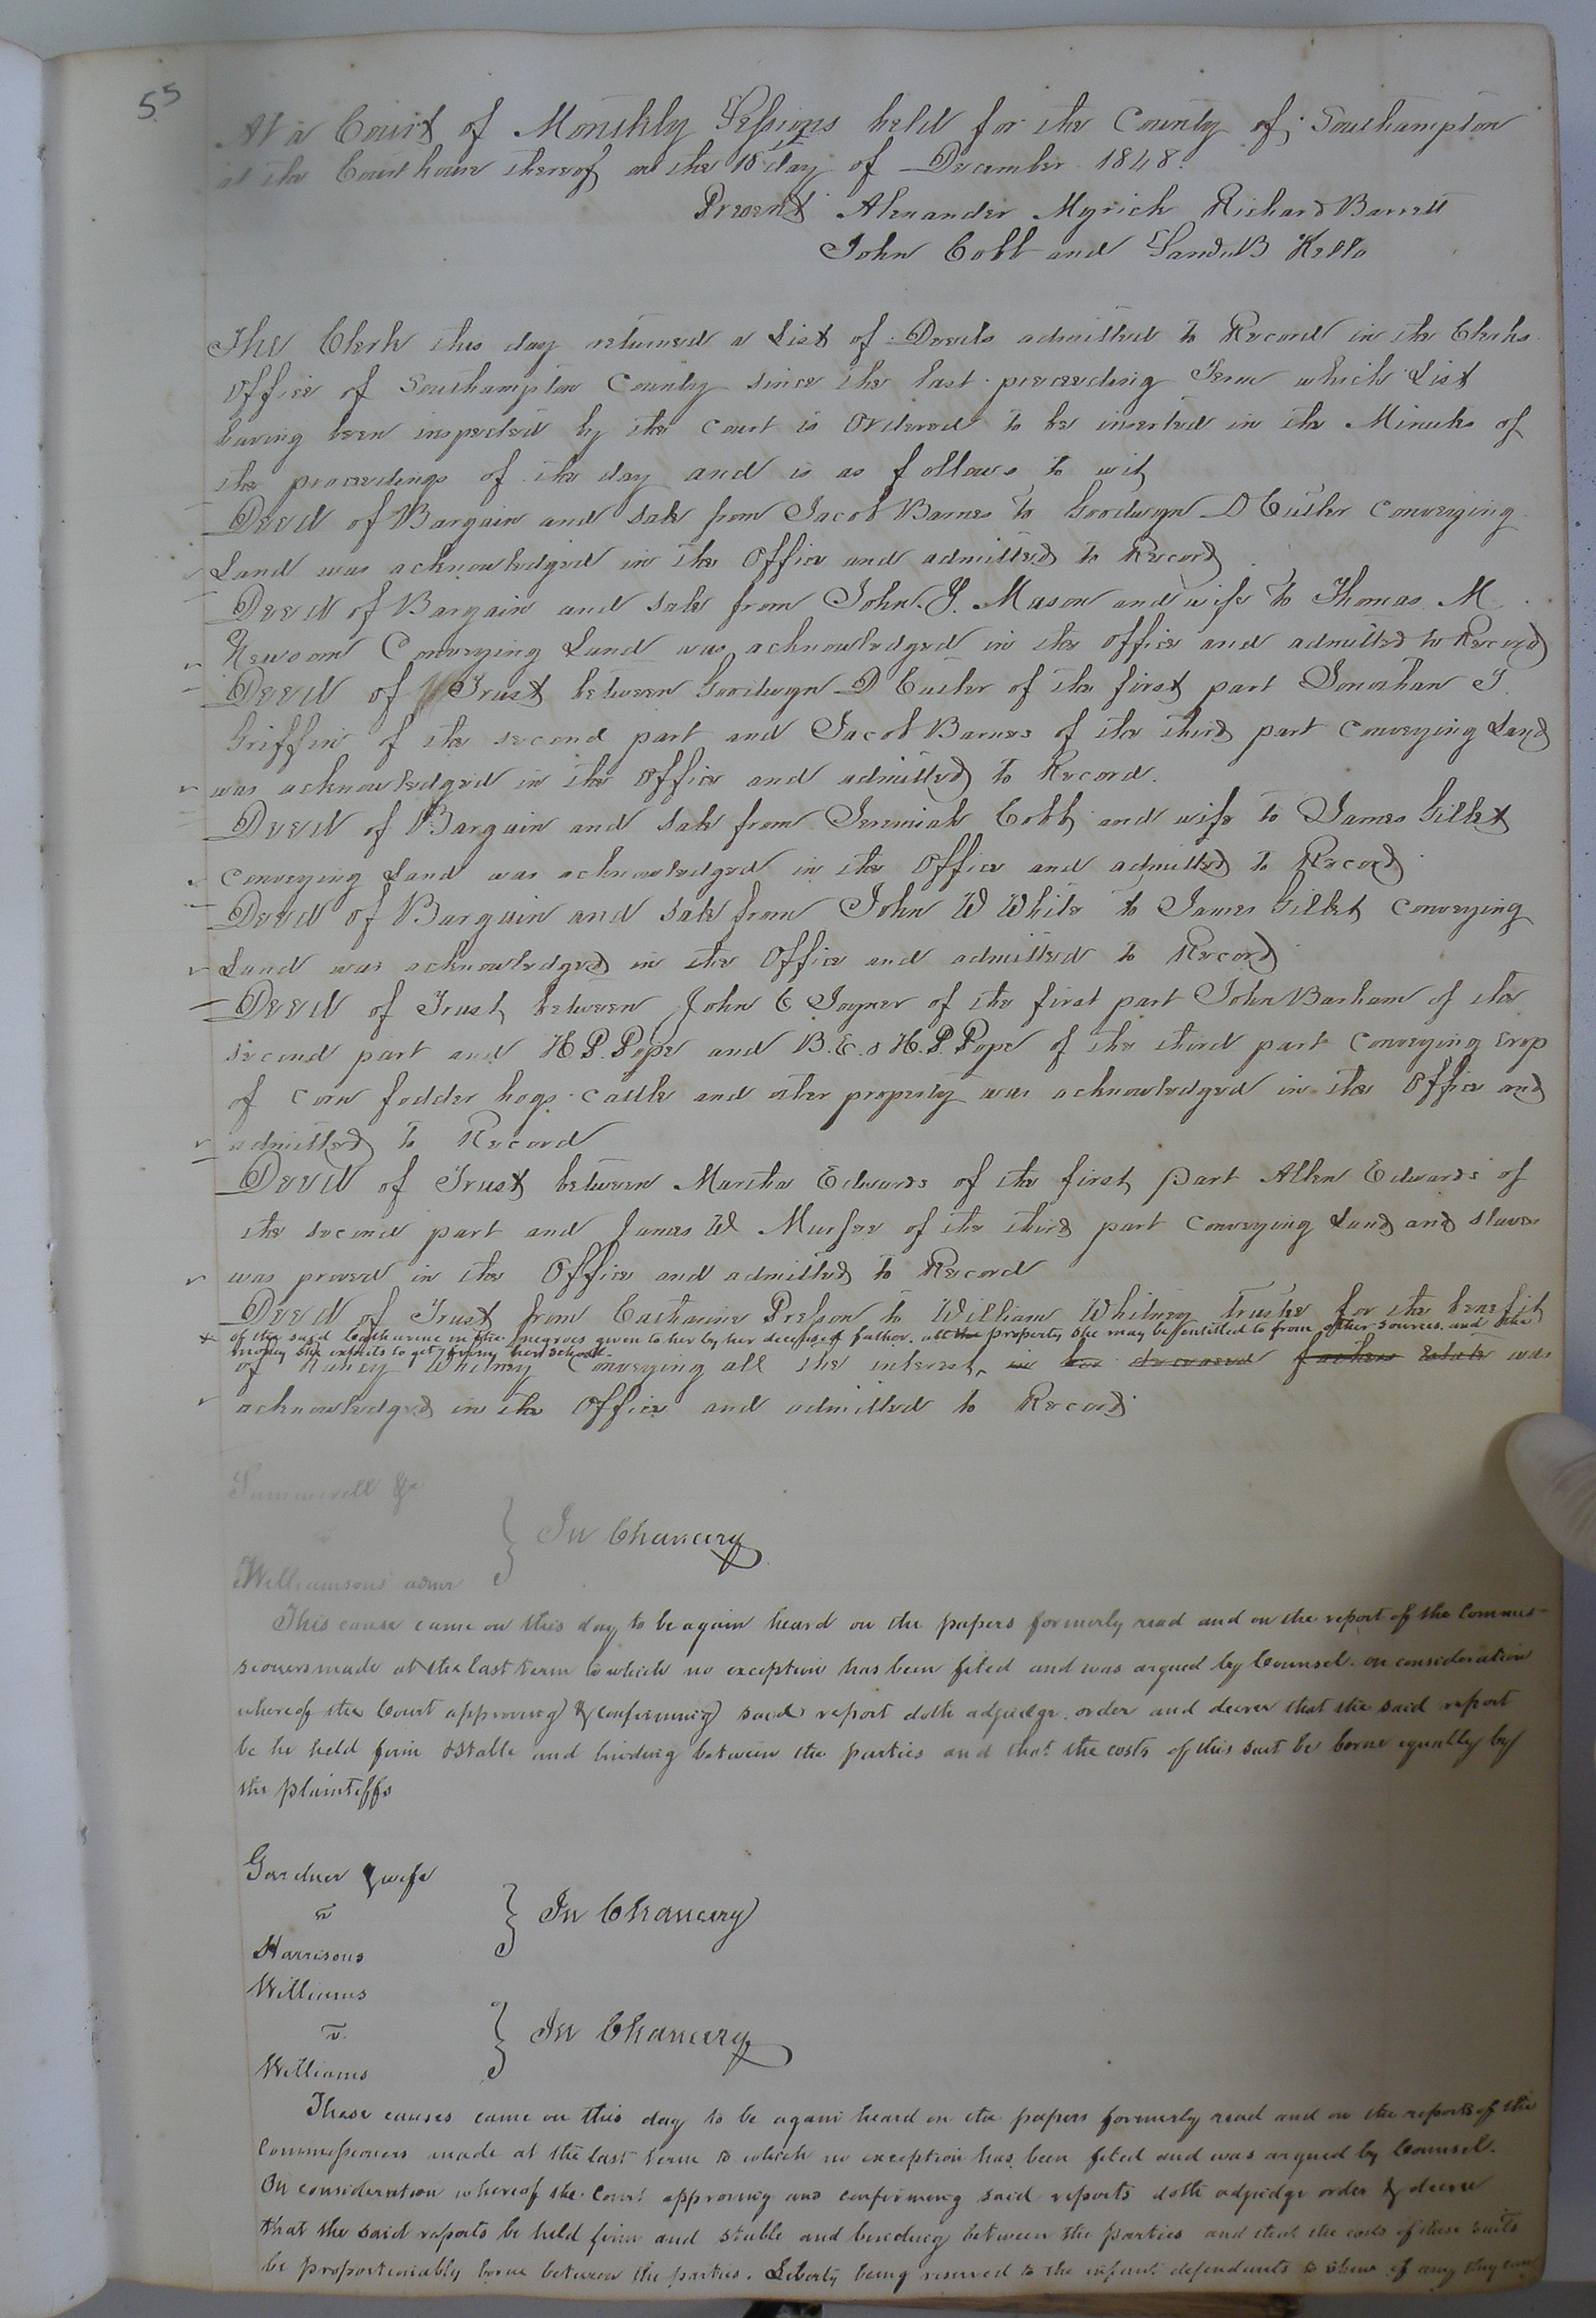 55
At a Court of Monthly Sessions held for the County of Southampton
at the Courthouse thereof on the 18th day of December 1848.
Present Alexander Myrick Richard Barrett
John Cobb and B Kello
The Clerk this day returned a List of Deeds admitted to Record in the Clerks
Office of Southampton County since the last preceeding Term which List
having been inspected by the Court is Ordered to be inserted in the Minutes of
the proceedings of the day and is as follows to wit
Deed of Bargain and Sale from Jacob Barnes to Goodwyn D Cutler Conveying
Land was acknowledged in the Office and admitted to Record
Deed of Bargain and Sale from John Y. Mason and wife to Thomas M
Newsom Conveying Land was acknowledged in the office and admitted to Record
Deed of Trust between Goodwyn D Cutler of the first part Jonathan T.
Griffin of the second part and Jacob Barnes of the third part Conveying Land
was acknowledged in the Office and admitted to Record.
Deed of Bargain and Sale from Jeremiah Cobb and wife to James Gillet
conveying Land was acknowledged in the Office and admitted to Record
Deed of Bargain and Sale from John W White to James Gillet conveying
Land was acknowledged in the Office and admitted to Record
Deed of Trust between John C Joyner of the first part John Barham of the
second part and H. P. Pope and B. E. & H. P. Pope of the third part Conveying crop
of corn fodder hogs cattle and other property was acknowledged in the Office and
admitted to Record
Deed of Trust between Martha Edwards of the first part Allen Edwards of
the second part and James W Murfee of the third part conveying Land and slaves
was proved in the Office and admitted to Record
Deed of Trust from Catharine Pretson to William Whitney trustee for the benefit
of the said Catharine in the negroes given to her by her deceased father, all the property she may be entitled to from other sources, and the
money she expects to get from her school.
of Nancy Whitney Conveying all the interest in her deceased fathers estate was
acknowledged in the Office and admitted to Record
Summerell &c
v
Williamsons admr
In Chancery
This cause came on this day to be again heard on the papers formerly read and on the report of the Commis-
sioners made at the last term to which no exception has been filed and was argued by Counsel. on consideration
whereof the Court approving & confirming said report doth adjudge, order and decree that the said report
be he held firm & stable and binding between the parties and that the costs of this suit be borne equally by
the plaintiffs
Gardner & wife
v
Harrisons
In Chancery
Williams
v.
Williams
In Chancery
These causes came on this day to be again heard on the papers formerly read and on the reports of the
Commissioners made at the last term to which no exception has been filed and was argued by Counsel.
On consideration whereof the Court approving and confirming said reports doth adjudge order & decree
that the said reports be held firm and stable and binding between the parties and that the costs of these suits
be proportionably borne between the parties. Liberty being reserved to the infant defendants to shew if any they can